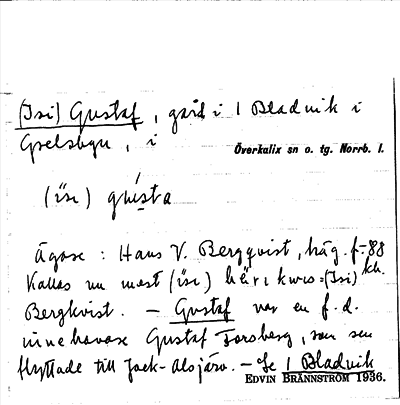 (Isi) Gustaf, gård i 1 Bladvik i
Grelsbyn, i
Överkalix sn o. tg. Norrb. l.
(ise) gústa
Ägare: Hans V. Bergqvist, häg. f. -88
Kallas nu mest (ise) härikwis = (Isi)
Bergkvist. – Gustaf var en f. d.
innehavare Gustaf Forsberg, som sen
flyttade till Jock-Alsjärv. – Se 1 Bladvik
EDVIN BRÄNNSTRÖM 1936.